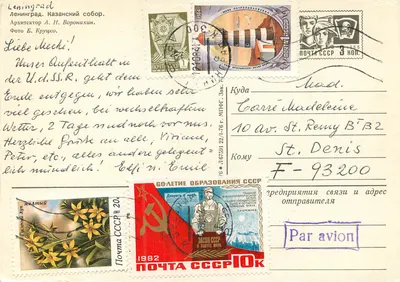 Leningrad
Ленинград. Казанский собор.
Архитектор А. Н. Воронихин.
Фото Б. Круцко.
Liebe Mechi!
Unser Aufenthalt in
der U.d.SSR. geht dem
Ende entgegen, wir haben sehr
viel gesehen, bei wechselhaftem
Wetter, 2 Tage sind noch vor uns.
Herzliche Grüße an alle, Viviane,
Peter, etc, alles andere gelegent
lich mündlich! Elfi u. Emil
ПОЧТА СССР
3 коп
Куда
Mad.
Carré Madeleine
10 Av. St. Remy Bt B2
St. Denis
Кому
F-93200
предприятия связи и адрес
отправителя
Par avion
Почта СССР 20к
60 ЛЕТИЕ ОБРАЗОВАНИЯ СССР
1982
ПОЧТА СССР 10К